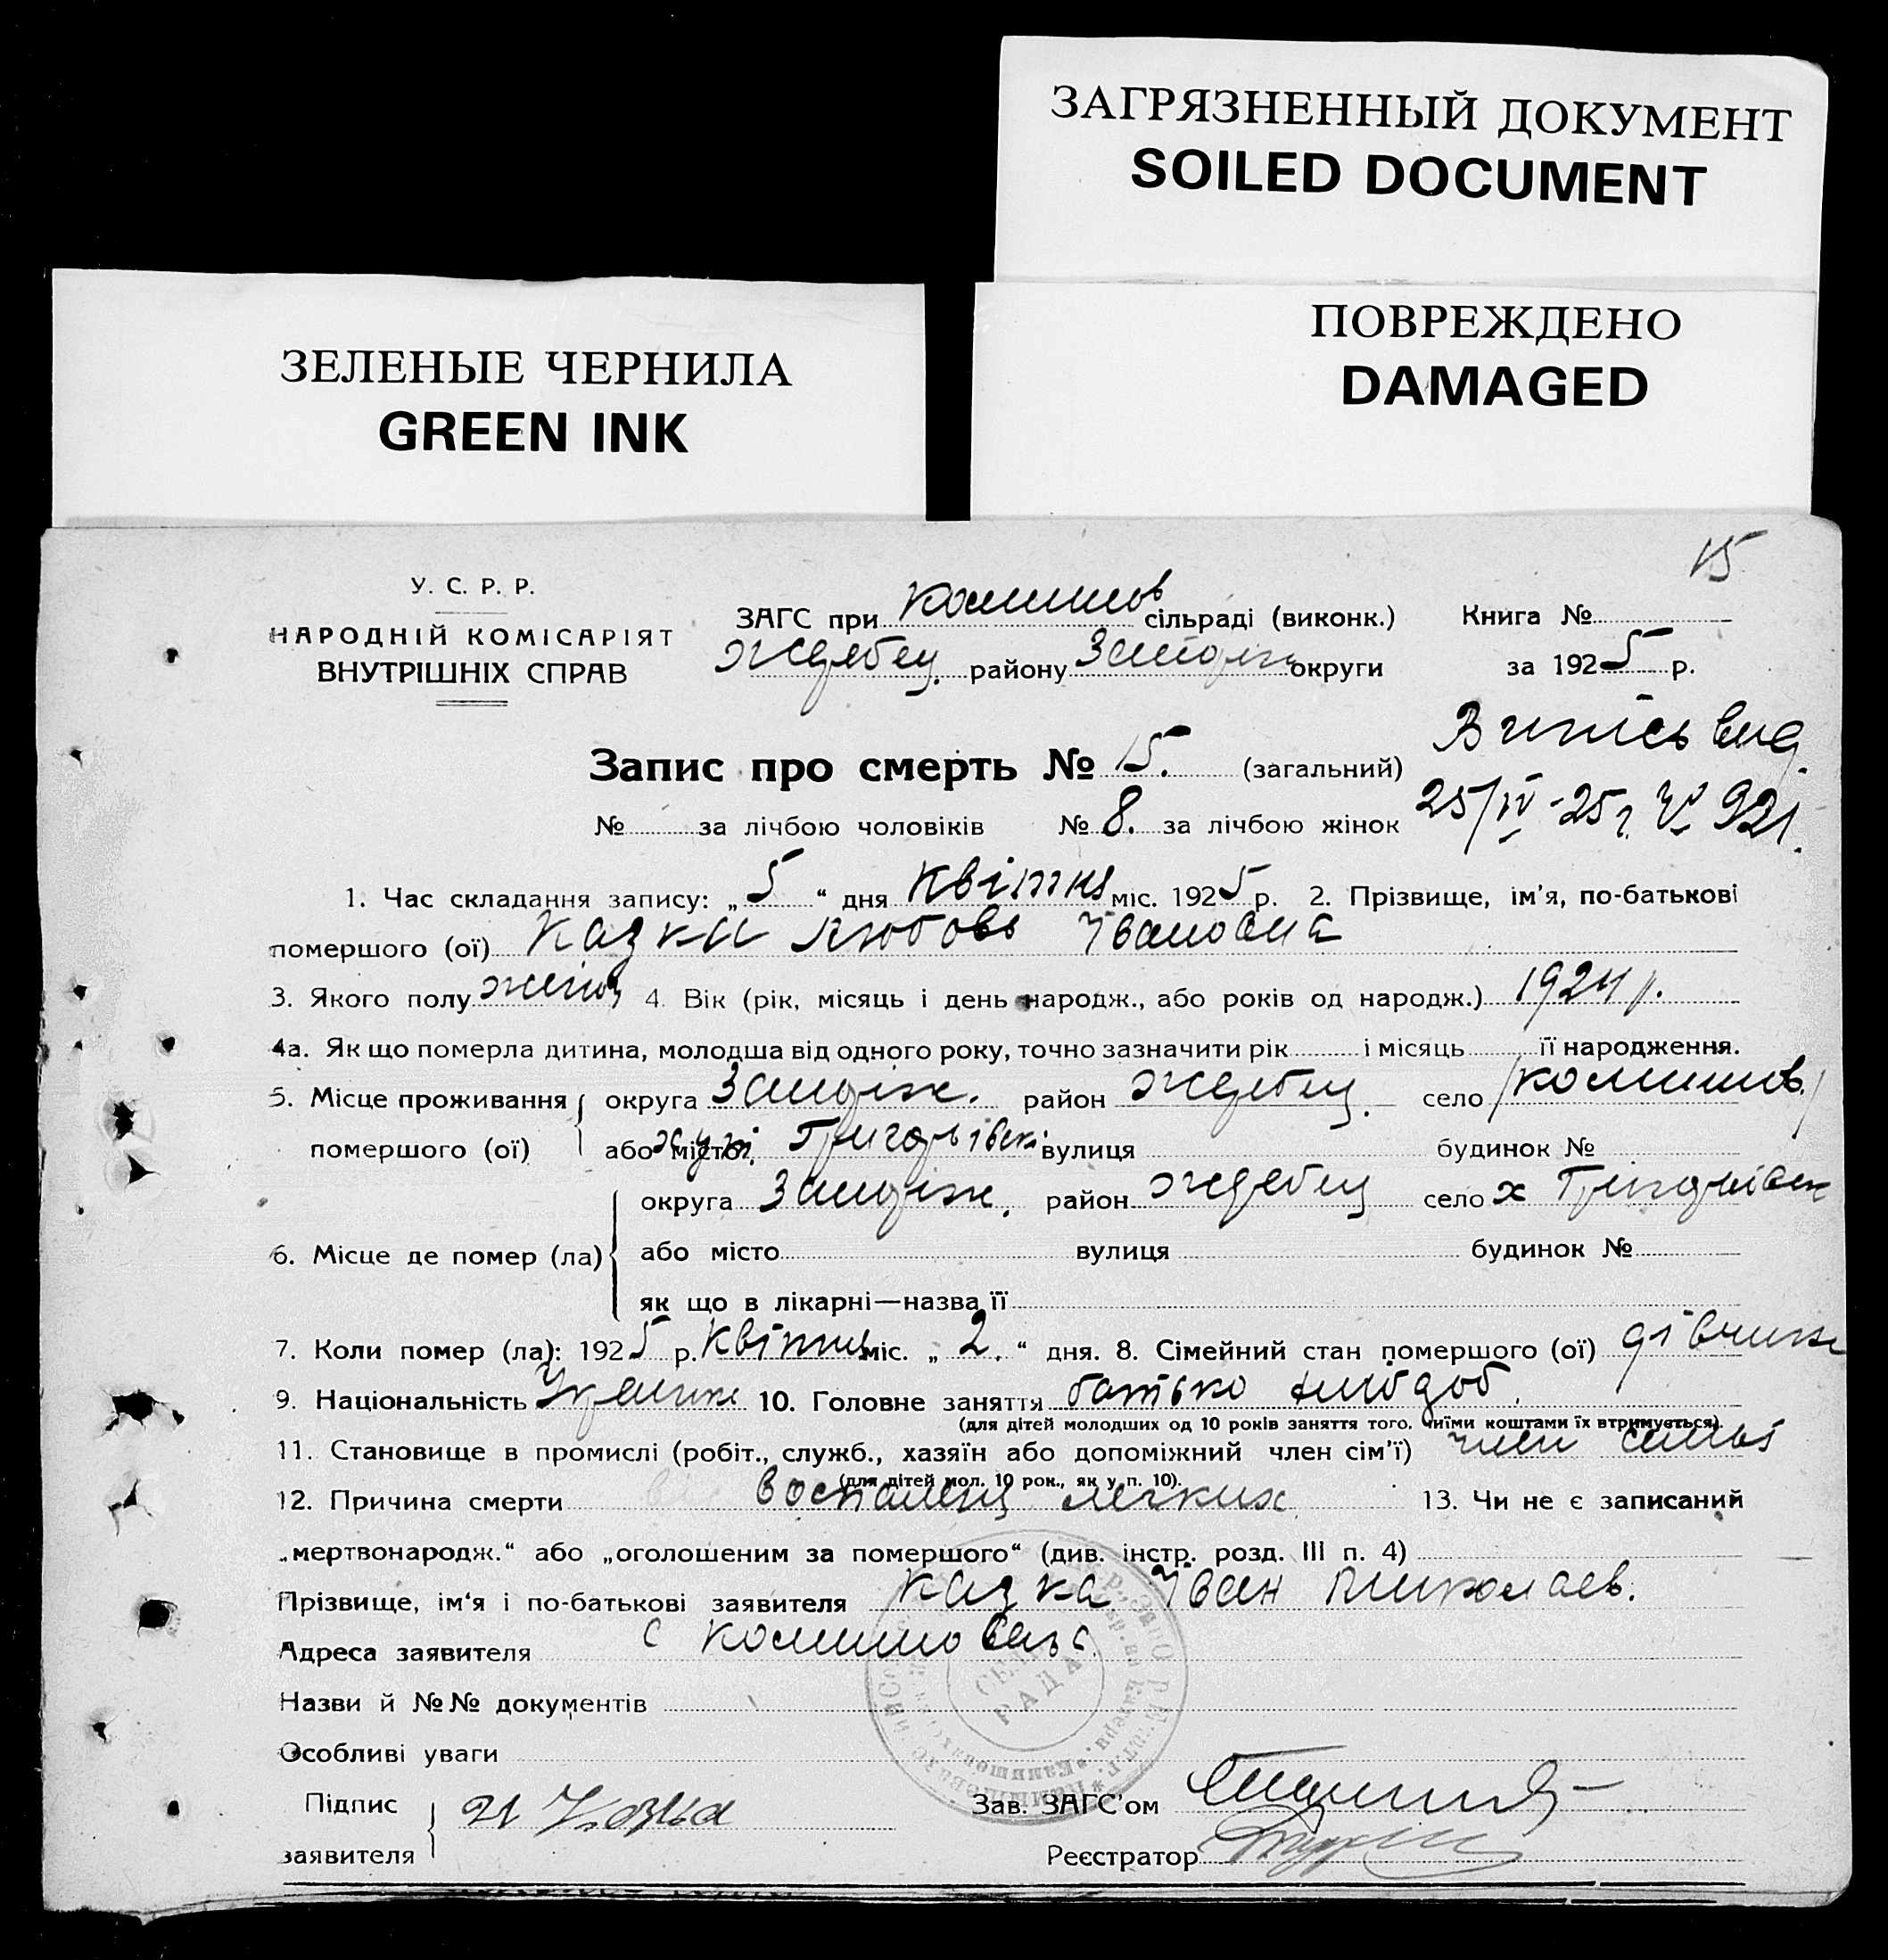 ЗАГРЯЗНЕННЫЙ ДОКУМЕНТ
SOILED DOCUMENT
ЗЕЛЕНЫЕ ЧЕРНИЛА
GREEN INK
ПОВРЕЖДЕНО
DAMAGED
15
У. С. Р. Р.
НАРОДНІЙ КОМІСАРІЯТ
ВНУТРІШНІХ СПРАВ
ЗАГС при Комишов сільраді (виконк.) Книга №
Жеребец. району Запоріж округи за 1925 р.
Випісь вид.
Запис про смерть № 15. (загальний)
25/IV-25 г. № 921.
№ за лічбою чоловіків № 8. за лічбою жінок
1. Час складання запису: „ 5 “ дня Квітня міс. 1925 р. 2. Прізвище, ім'я, по-батькові
помершого (ої) Казка Любовь Івановна
3. Якого полу жіноч 4. Вік (рік, місяць і день народж., або років од народж.) 1924 р.
4а. Як що померла дитина, молодша від одного року, точно зазначити рік і місяць її народження.
5. Місце проживання округа Запоріж. район Жеребец. село /Комишов./
помершого (ої) або місто Григорівськ вулиця будинок №
округа Запоріж. район Жеребец село х Григорівськ
6. Місце де помер (ла) або місто вулиця будинок №
як що в лікарні—назва її
7. Коли помер (ла): 1925 р. Квітня міс. „ 2. “ дня. 8. Сімейний стан помершого (ої) дівчина
9. Національність Україн 10. Головне заняття батько хлібороб.
(для дітей молодших од 10 років заняття того, чиїми коштами їх втримується).
11. Становище в промислі (робіт., служб., хазяїн або допоміжний член сім'ї) член сімьї
(для дітей мол. 10 рок., як у п. 10).
12. Причина смерти воспаленя легких 13. Чи не є записаний
„мертвонародж.“ або „оголошеним за помершого“ (див. інстр. розд. III п. 4)
Прізвище, ім'я і по-батькові заявителя Казка Іван Николаев.
Адреса заявителя с Комишоваха
Назви й №№ документів
Особливі уваги
СЕЛЬ
РАДА
Підпис И Казка Зав. ЗАГС'ом
заявителя Реєстратор